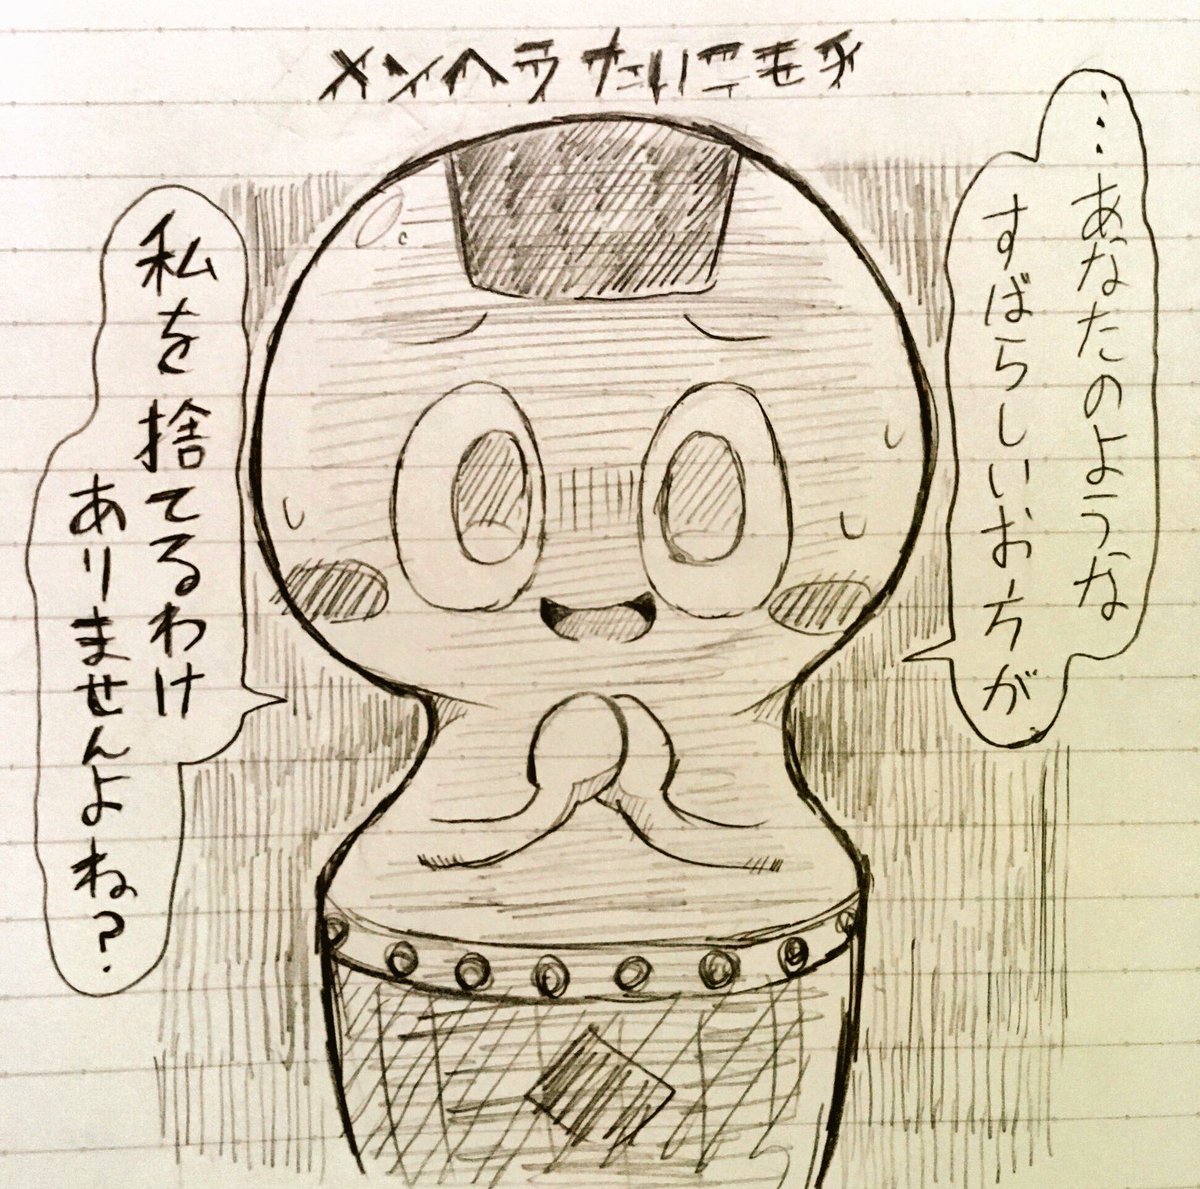 メンヘラたいこモチ
…あなたのような
すばらしいお方が
私を捨てるわけ
ありませんよね?